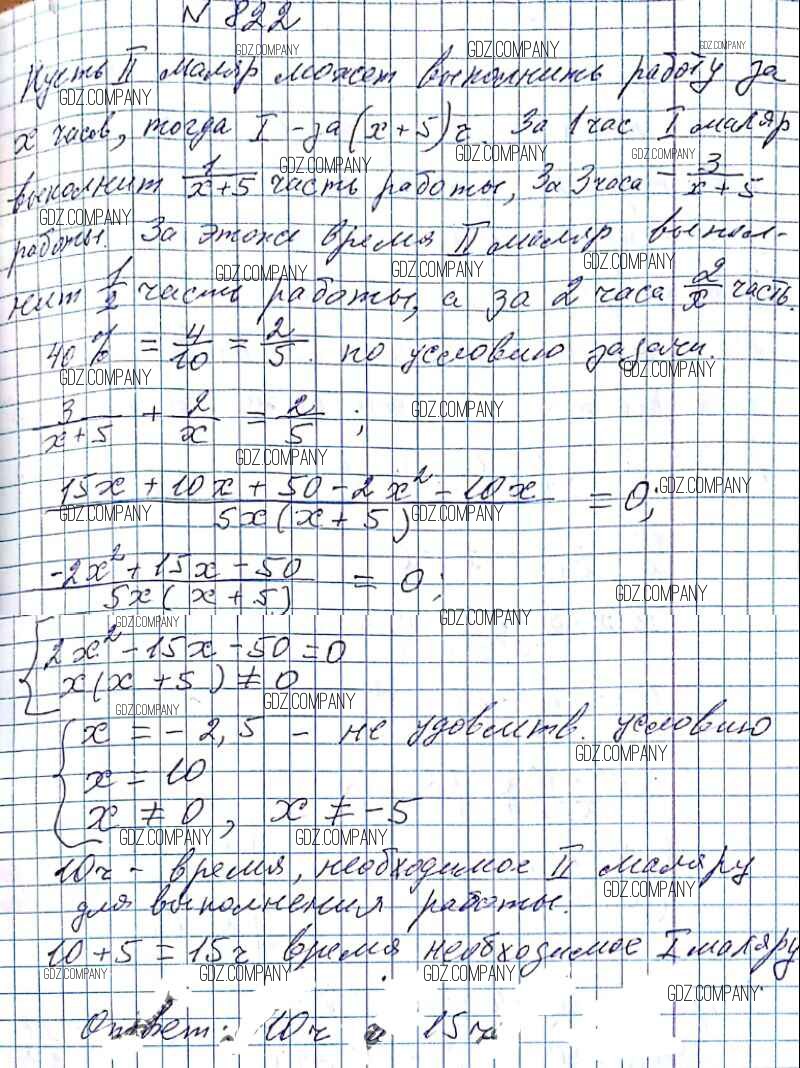 N 822
Пусть II маляр может выполнить работу за
x часов, тогда I - за (x+5) ч. За 1 час I маляр
выполнит 1/(x+5) часть работы, за 3 часа - 3/(x+5)
работы. За это же время II маляр выпол-
нит 1/x часть работы, а за 2 часа 2/x часть.
40% = 4/10 = 2/5. по условию задачи.
3/(x+5) + 2/x = 2/5;
(15x + 10x + 50 - 2x² - 10x)/(5x(x+5)) = 0;
(-2x² + 15x - 50)/(5x(x+5)) = 0;
2x² - 15x - 50 = 0
x(x+5) ≠ 0
x = -2,5 - не удовлетв. условию
x = 10
x ≠ 0, x ≠ -5
10ч - время, необходимое II маляру
для выполнения работы.
10 + 5 = 15ч время необходимое I маляру
Ответ: 10ч и 15ч
GDZ.COMPANY